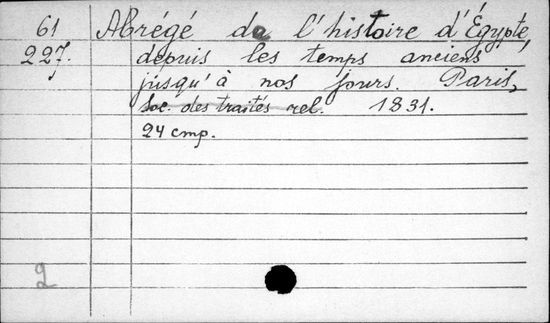 61 Abrégé de l'histoire d'Égypte,
227. depuis les temps anciens
jusqu'à nos jours. Paris,
Soc. des traités rel. 1831.
24 стр.
2